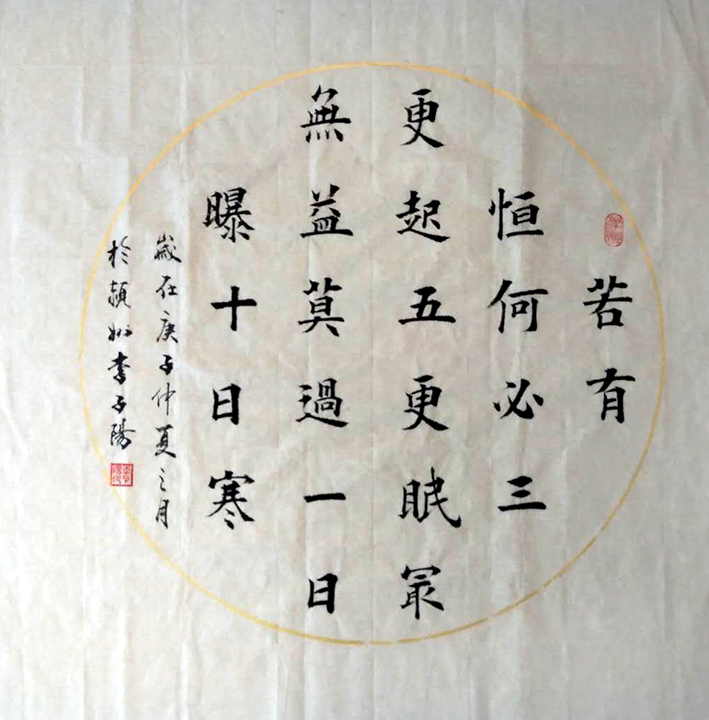 若有
恒何必三
更起五更眠冣
無益莫過一日
曝十日寒
歲在庚子仲夏之月
於潁州李子陽